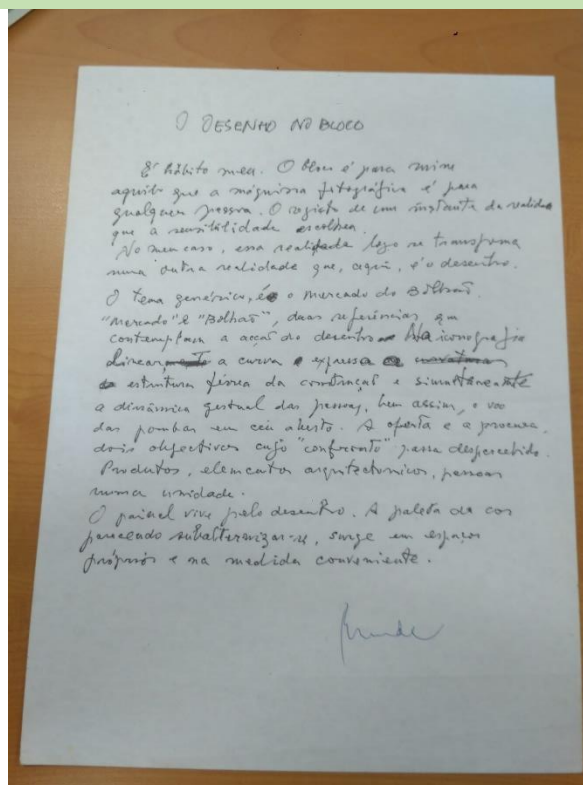 O DESENHO NO BLOCO
É hábito meu. O bloco é para mim
aquilo que a máquina fotográfica é para
qualquer pessoa. O registo de um instante da realidade
que a sensibilidade escolhe.
No meu caso, essa realidade logo se transforma
numa outra realidade que, aqui, é o desenho.
O tema genérico, é o Mercado do Bolhão.
"Mercado" e "Bolhão", duas referências que
contemplam a acção do desenho. Na iconografia
linear, a curva expressa a
estrutura férrea da construção e simultaneamente
a dinâmica gestual das pessoas, bem assim, o voo
das pombas em céu aberto. A oferta e a procura,
dois objectivos cujo "confronto" passa despercebido.
Produtos, elementos arquitectónicos, pessoas
numa unidade.
O painel vive pelo desenho. A paleta da cor
parecendo subalternizar-se, surge em espaços
próprios e na medida conveniente.